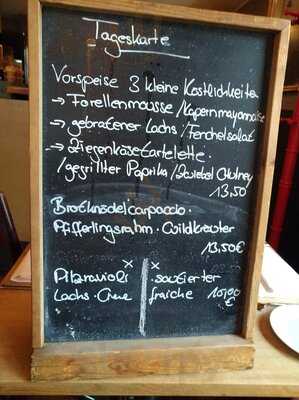 Tageskarte
Vorspeise 3 kleine Köstlichkeiten
→ Forellenmousse/Kapernmayonnaise
→ gebratener Lachs/Fenchelsalat
→ Ziegenkäsetartelette.
/gegrillter Paprika/Zwiebel Chutney
13,50
Brotknödelcarpaccio.
Pfifferlingsrahm. Wildkräuter
13,50€
x x
Pilzravioli | sautierter
Lachs. Creme | fraiche 10,00
€